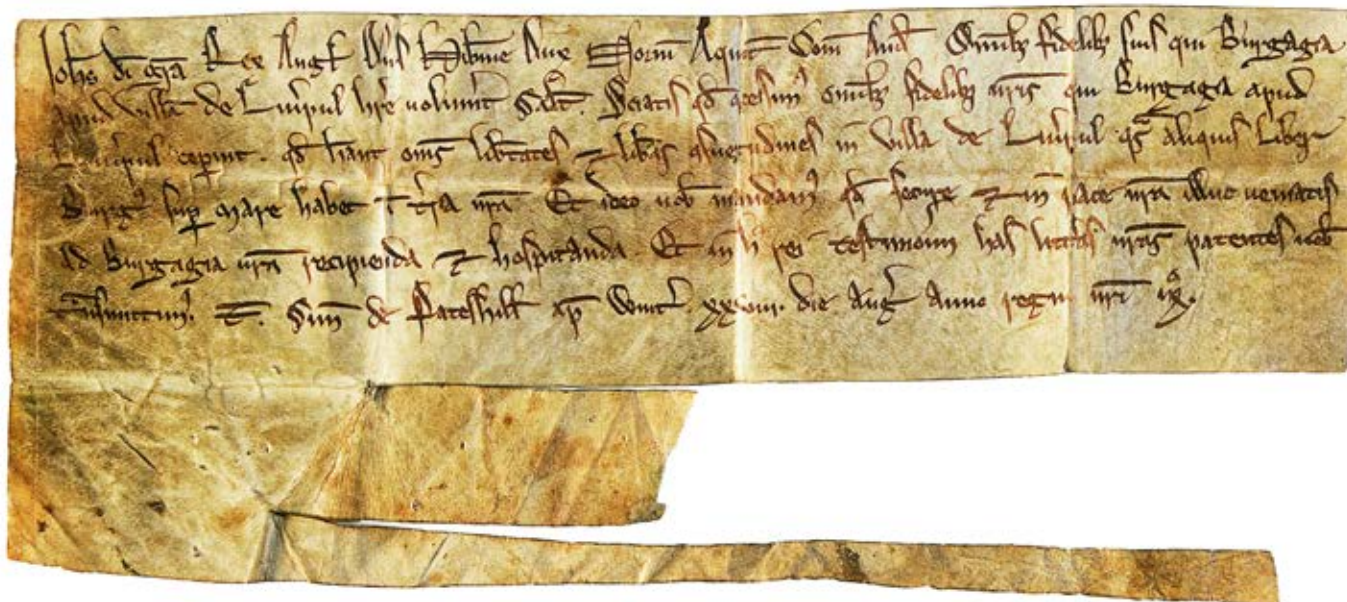 Johes di gra Rex Angl Dns Hibnie Dux Norm Aquit Com And Omnibz fidelibz suis qui Burgaga
apud villa de Liverpul hre voluint Salt. Sciatis qd concessim omibz fidelibz nris qui Burgagia apud
Liverpul ceperint. qd hant oms libtates & libas consuetudines in villa de Liverpul qs aliquis liber
Burg sup mare habet i tra nra Et ideo vob mandam qd secure & in pace nra illuc veniatis
ad Burgagia nra recipienda & hospitanda. Et in h rei testimoniu has litteras nras patentes vob
tnsmittim. T. Sim de Pateshill ap Wint. xxviii. die Aug Anno regni nri ix.